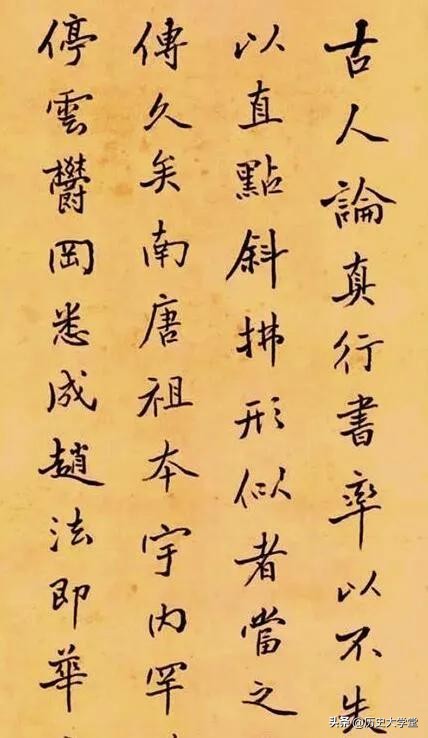 古人論真行書率以不失
以直點斜拂形似者當之
傳久矣南唐祖本宇内罕
停雲欝岡悉成趙法即華
头条 @历史大学堂